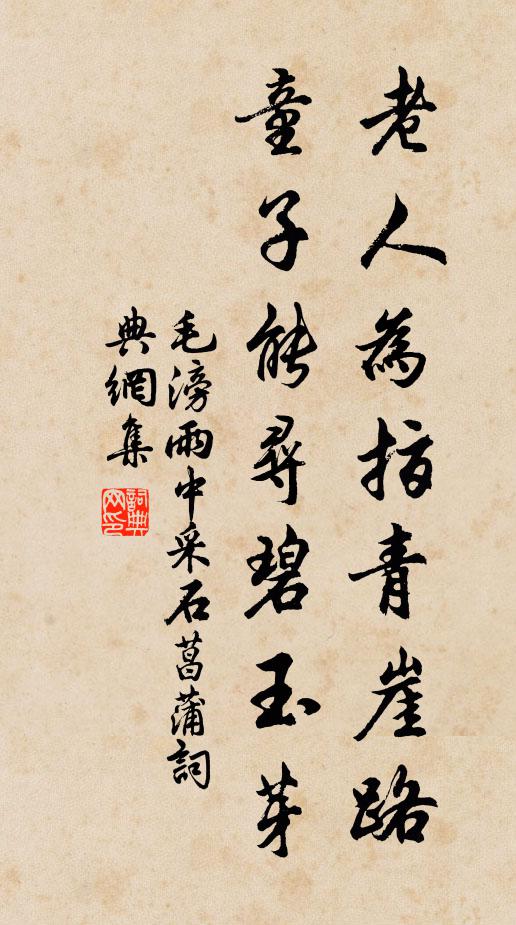 老人為指青崖路
童子能尋碧玉芽
毛滂雨中采石菖蒲詞
典網集
詞典網印